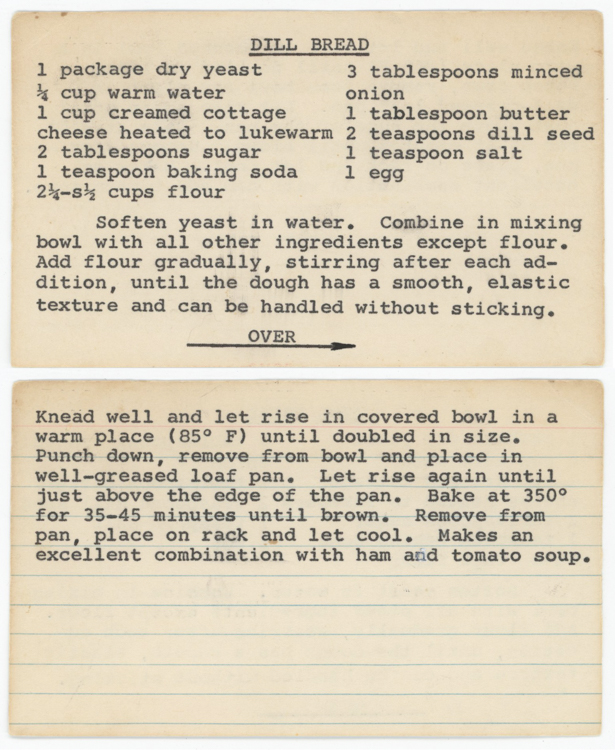 DILL BREAD
1 package dry yeast
¼ cup warm water
1 cup creamed cottage
cheese heated to lukewarm
2 tablespoons sugar
1 teaspoon baking soda
2¼-s½ cups flour
3 tablespoons minced
onion
1 tablespoon butter
2 teaspoons dill seed
1 teaspoon salt
1 egg
Soften yeast in water. Combine in mixing
bowl with all other ingredients except flour.
Add flour gradually, stirring after each ad-
dition, until the dough has a smooth, elastic
texture and can be handled without sticking.
OVER
Knead well and let rise in covered bowl in a
warm place (85° F) until doubled in size.
Punch down, remove from bowl and place in
well-greased loaf pan. Let rise again until
just above the edge of the pan. Bake at 350°
for 35-45 minutes until brown. Remove from
pan, place on rack and let cool. Makes an
excellent combination with ham and tomato soup.